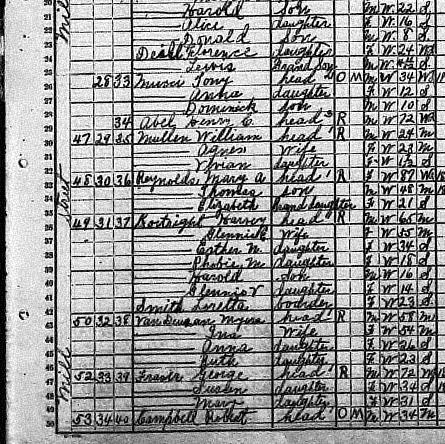 Harold Son M W 22 S
21 Alice daughter F W 16 S
22 Donald Son M W 8 S
23 Florence daughter F W 24 Wd
24 Lewis Grand Son M W S
25 28 33 Musci Tony head O M M W 34 Wd
26 Anna daughter F W 12 S
27 Dominick Son M W 10 S
28 34 Abel Henry C. head R M W 72 Wd
29 47 29 35 Mullen William head R M W 24 M
30 Agnes Wife F W 23 M
31 Vivian daughter F W 1½ S
32 48 30 36 Reynolds, Mary A. head R F W 87 Wd
33 Thomas son M W 48 M
34 Elizabeth Grand daughter F W 21 S
35 49 31 37 Kortright Harvey head R M W 65 M
36 Glennie Wife F W 55 M
37 Esther M. daughter F W 34 S
38 Phobie M daughter F W 18 S
39 Harold Son M W 16 S
40 Glennie V daughter F W 14 S
41 Smith Loretta boarder F W 23 S
42 50 32 38 Van Deusan head R M W 58 M
43 Wife F W 54 M
44 Anna daughter F W 26 S
45 Ruth daughter F W 23 S
46 52 33 39 George head R M W 72 Wd
47 Susan daughter F W 34 S
48 Mary daughter F W 31 S
49 53 34 40 Campbell Robert head O M M W 34 M
50
Mill
Street
Mill